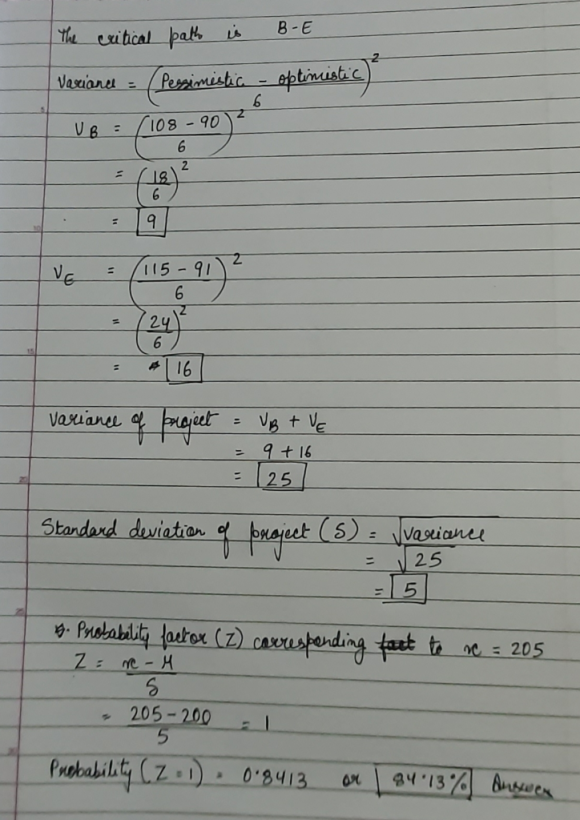 The critical path is B-E
Variance = (Pessimistic - optimistic / 6)²
V B = (108 - 90 / 6)²
= (18 / 6)²
= 9
V E = (115 - 91 / 6)²
= (24 / 6)²
= 16
Variance of project = V B + V E
= 9 + 16
= 25
Standard deviation of project (S) = √variance
= √25
= 5
Probability factor (Z) corresponding to x = 205
Z = x - μ / S
= 205 - 200 / 5 = 1
Probability (Z = 1) = 0.8413 or 84.13% Answer